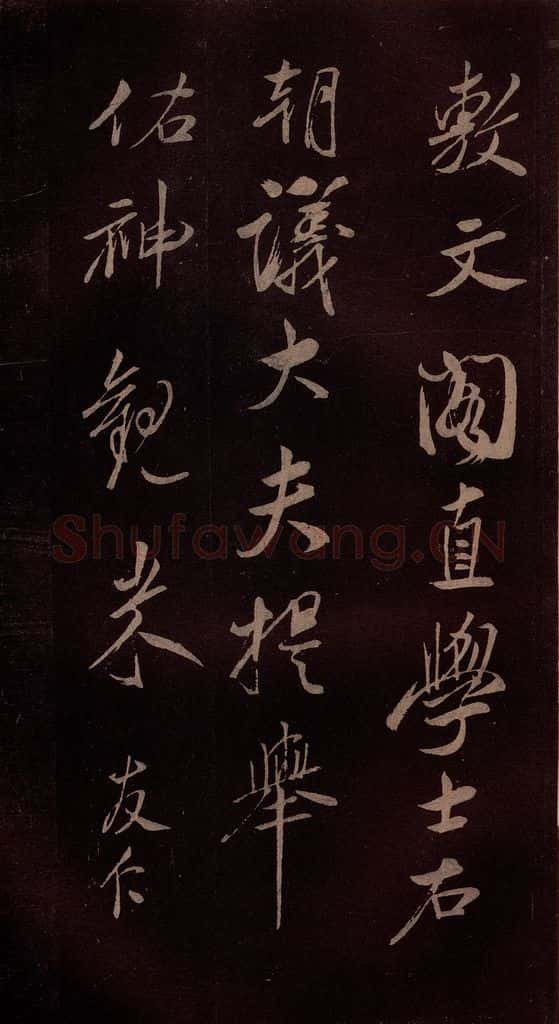 敷文阁直學士右
朝議大夫提舉
佑神觀米友仁
Shufawang.CN